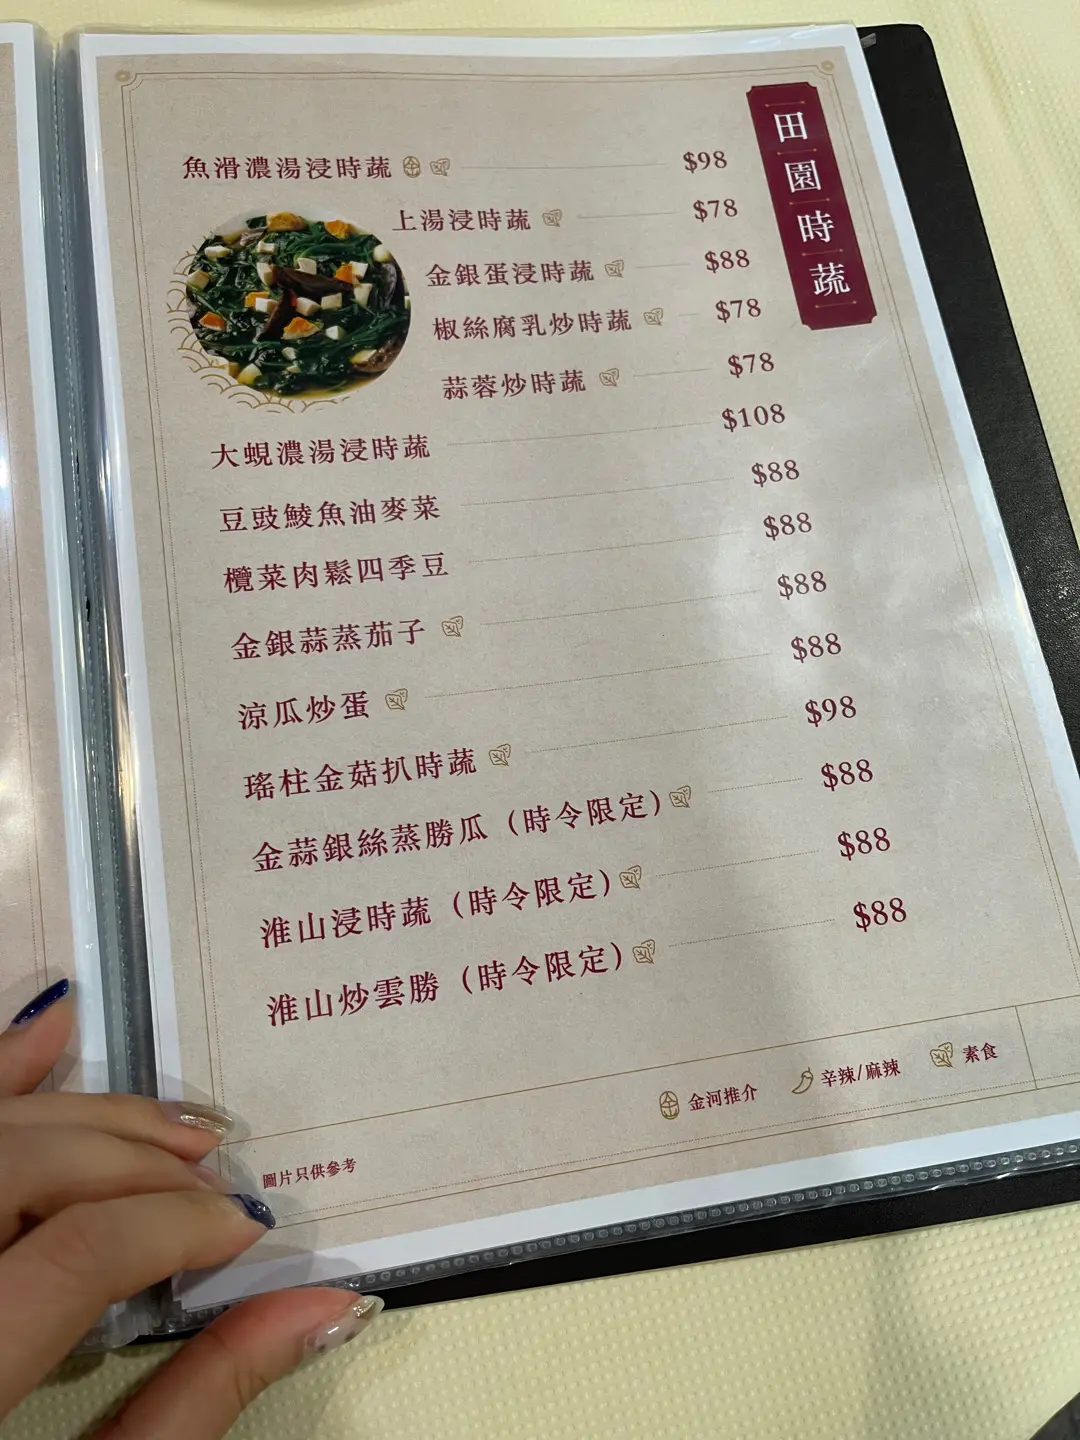 田園時蔬
魚滑濃湯浸時蔬 $98
上湯浸時蔬 $78
金銀蛋浸時蔬 $88
椒絲腐乳炒時蔬 $78
蒜蓉炒時蔬 $78
大蜆濃湯浸時蔬 $108
豆豉鯪魚油麥菜 $88
欖菜肉鬆四季豆 $88
金銀蒜蒸茄子 $88
涼瓜炒蛋 $88
瑤柱金菇扒時蔬 $98
金蒜銀絲蒸勝瓜（時令限定） $88
淮山浸時蔬（時令限定） $88
淮山炒雲勝（時令限定） $88
金河推介 辛辣/麻辣 素食
圖片只供參考